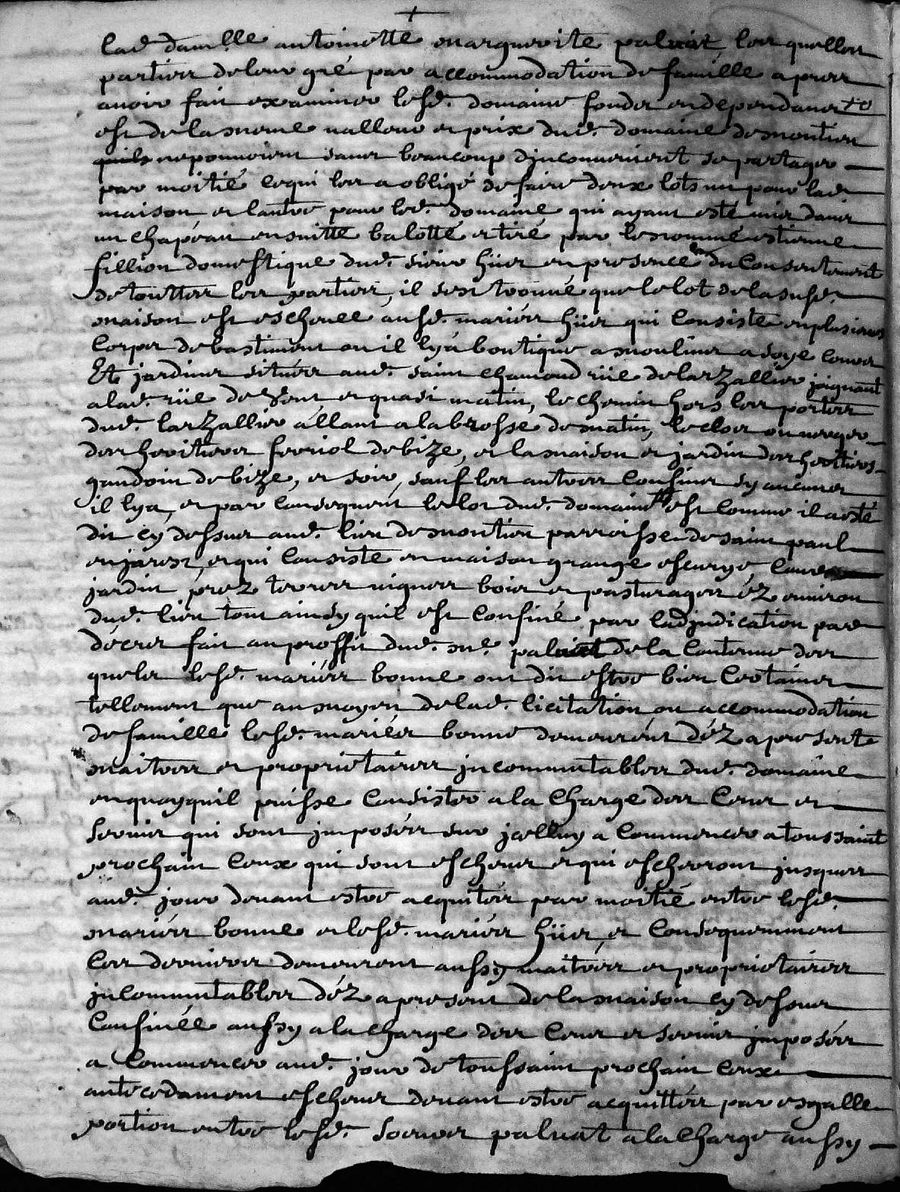 +
lad. damlle antoinette marguerite paluat lesquelles
parties de leur gré par accommodation de famille apres
avoir fait examiner lesd. domaine fonder en dependant
est de la meme valleur et prix dud. domaine de montieu
quils ne pouvoient sans beaucoup dinconvenient se partager
par moitié ce qui les a obligé de faire deux lots un pour lad.
maison et lautre pour led. domaine qui ayant esté mis dans
un chapeau ensuitte balotté et tiré par le nommé estienne
fillion domestique dud. sieur hüer en presence et du consentement
de touttes les parties, il sest trouvé que le lot de la susd.
maison est escheuee ausd. mariés hüer qui consiste en plusieurs
corps de bastiment ou il ly a boutique a mouliner a soye couer
Et jardins situés aud. saint chamond rüe de larzallier joignant
a lad. rüe de vent et quasi matin, le chemin hors les portes
dud. larzallier allant a la brosse de matin, le clos ou verger
des heritiers ferriol de bize, et la maison et jardin des heritiers
gaudoin de bize, et soir, sauf les autres confins sy aucuns
il ly a, et par consequent le lot dud. domaine est comme il a esté
dit cy dessus aud. lieu de montieu parroisse de saint paul
en jarest, et qui consiste en maison grange escurye couer
jardin, prez terres vignes bois et pasturages éz environ
dud. lieu tout ainsy quil est confiné par ladjudication par
décret fait au proffit dud. me. paluat de la contenue des
quels lesd. mariés bonne ont dit estre bien certains
tellement que au moyen de lad. licitation ou accommodation
de famille lesd. mariés bonne demeurent déz a present
maitres et proprietaires jncommutables dud. domaine
en quoy quil puisse consister a la charge des cens et
servis qui sont jmposés sur jcelluy a commencer a toussaint
prochain ceux qui sont escheus et qui escherront jusques
aud. jour devant estre acquités par moitié entre lesd.
mariés bonne et lesd. mariés hüer, et consequemment
ces derniers demeurent aussy maitres et proprietaires
jncommutables déz a present de la maison cy dessus
confinée aussy a la charge des cens et servis jmposés
a commencer aud. jour de toussaint prochain ceux
antecedament escheus devant estre acquittés par esgalle
portion entre lesd. soeurs paluat a la charge aussy